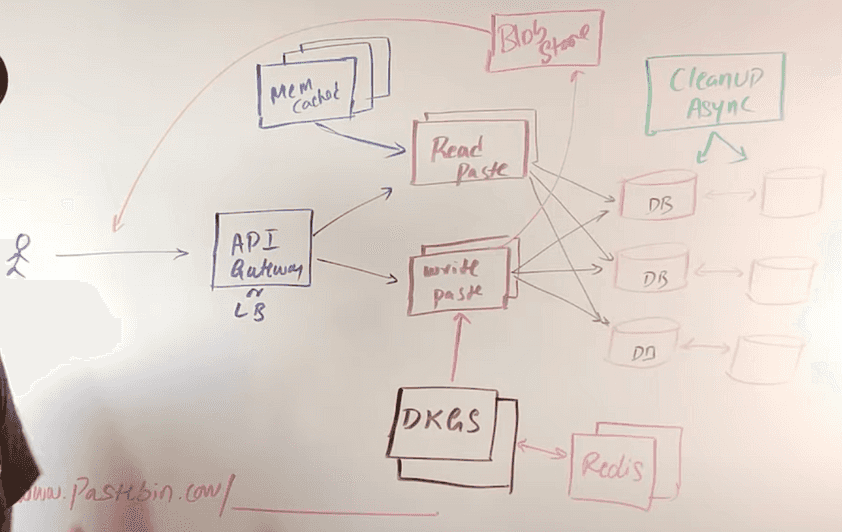 Blob
Store
Mem
Cached
CleanUp
Async
Read
Paste
DB
API
Gateway
or
LB
write
paste
DB
DB
DKGS
Redis
www.Pastebin.com/